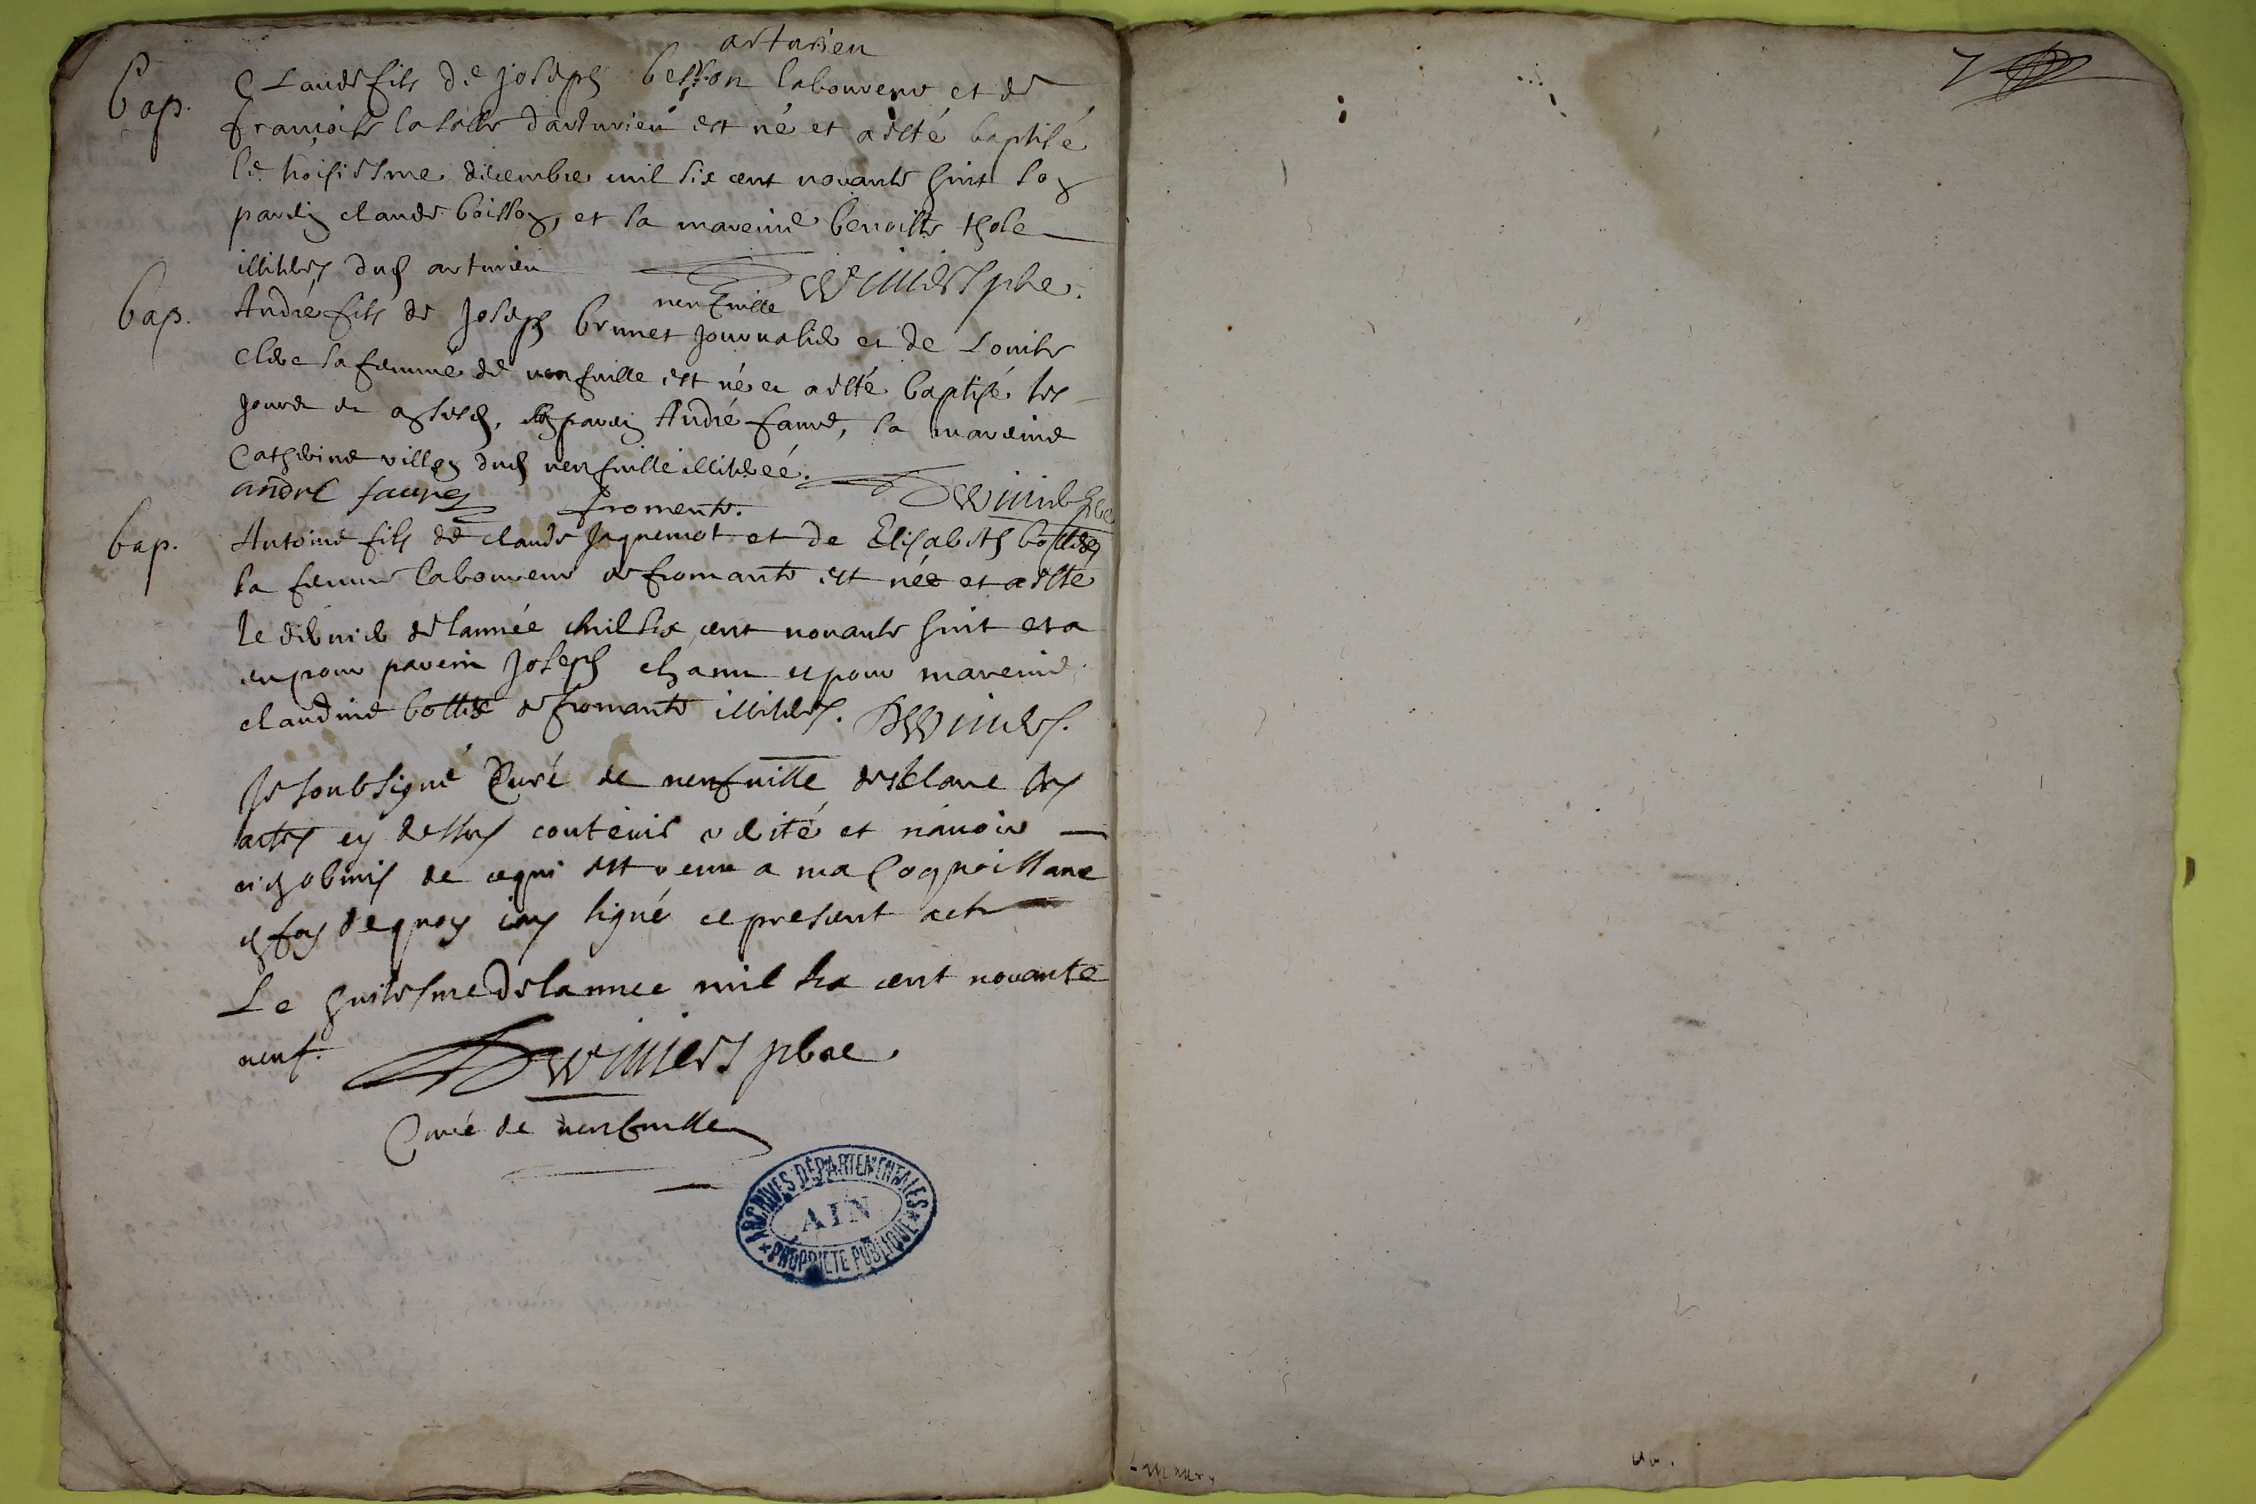 arturieu
Bap.
Claude fils de Joseph besson laboureur et de
francoise lasalle darturieu est né et a esté baptisé
le troisiesme decembre mil six cent novante huit son
parein claude boisson, et la mareine benoiste
illitérés dud arturieu
Winiers pbre.
neufville
bap.
André fils de Joseph brunet Journalier et de Louise
clerc sa femme de neufville est né et a esté baptisé les
Jours et an susd, son parein André faure, la mareine
Catherine villon dud neufville illiterée.
andre faure
Winiers pbre
fromente.
bap.
Antoine fils de claude Jaquemot et de Elisabeth bottier
sa femme laboureur de fromente est née et a esté
le dernier de lannée mil six cent novante huit et a
eu pour parein Joseph et pour mareine
claudine bottier de fromente illiterés. Winiers.
Je soubsigné Curé de neufville desclare les
actes cy dessus contenir verité et n'avoir
rien obmis de ce qui est venu a ma Cognoissance
en foy de quoy iay signé ce present acte
Le huitiesme de lannee mil six cent novante
neuf.
Winiers pbre
Curé de neufville
ARCHIVES DÉPARTEMENTALES
AIN
PROPRIÉTÉ PUBLIQUE
7